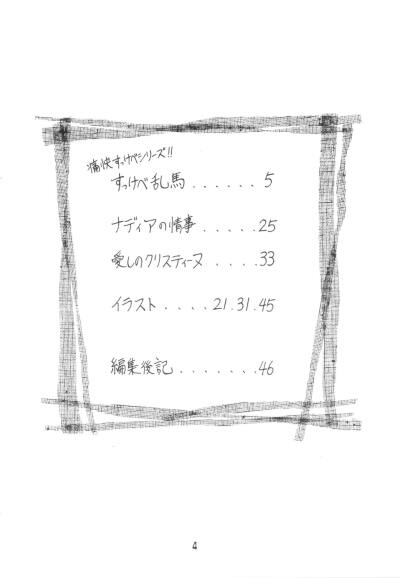 痛快すっけべシリーズ!!
すっけべ乱馬.......5
ナディアの情事.....25
愛しのクリスティーヌ....33
イラスト....21.31.45
編集後記.......46
4